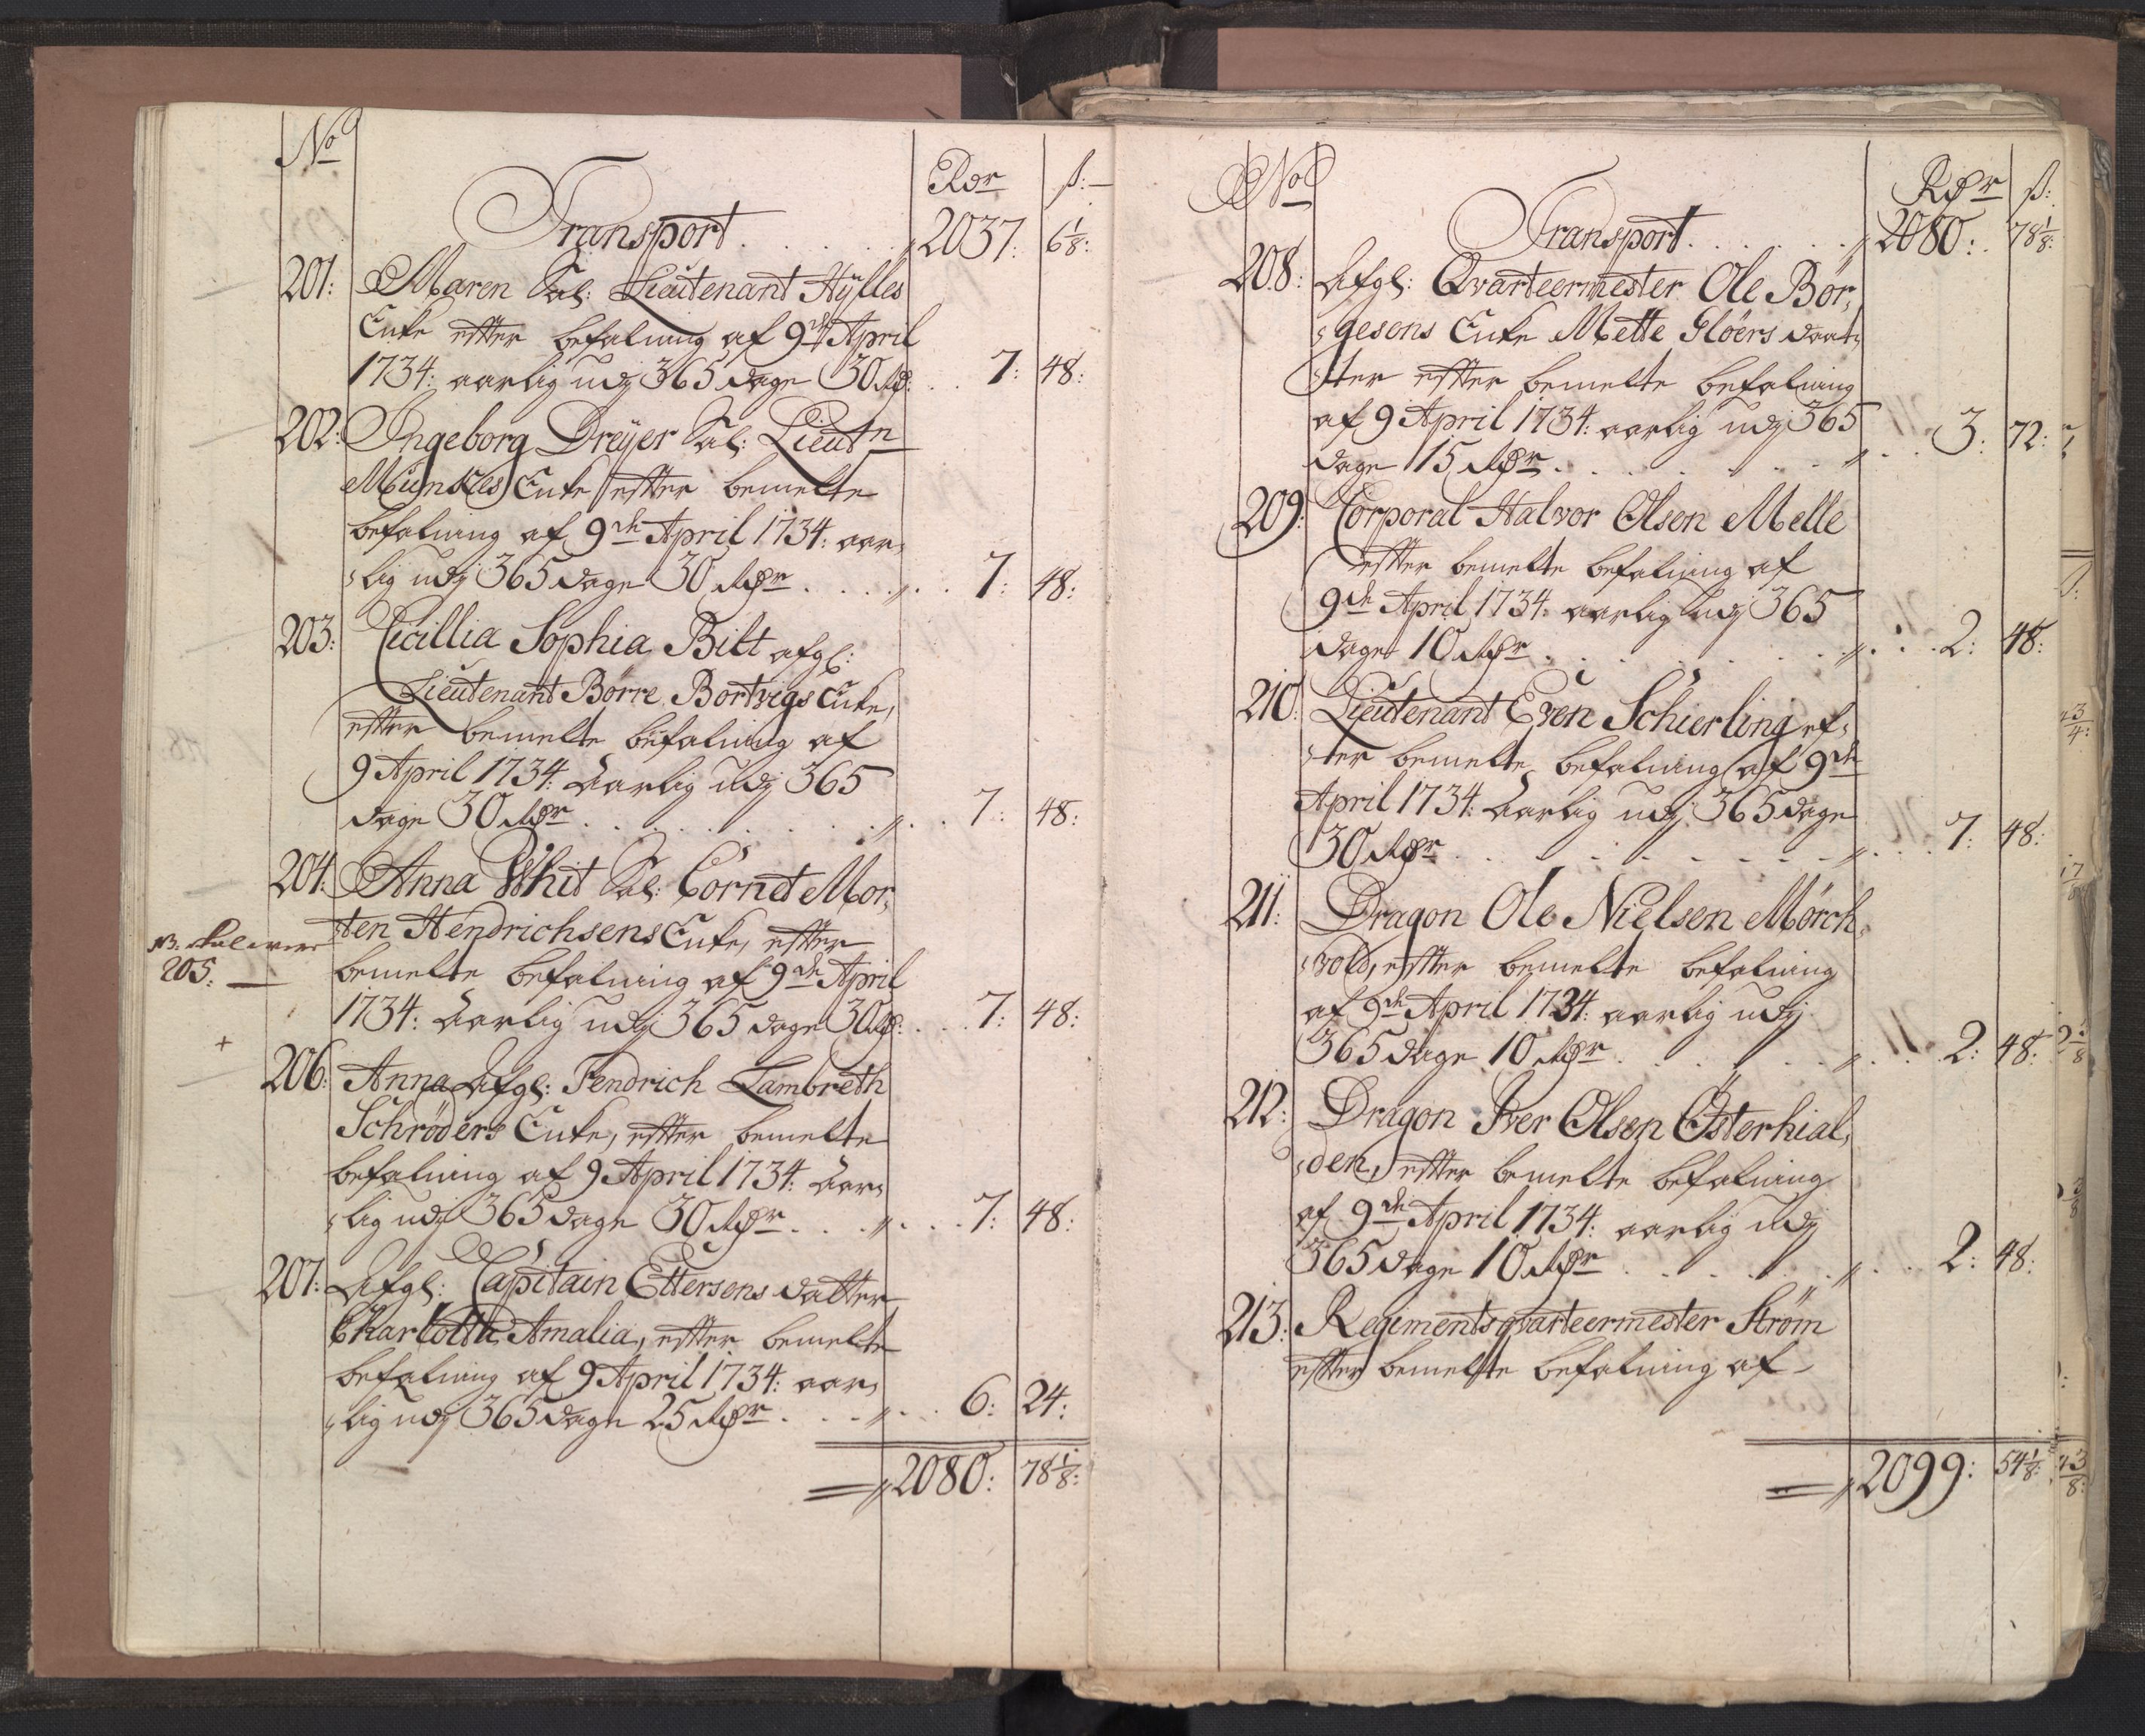 No
Rdr ß:
Transport . . . . . 2037: 6 1/8:
201: Maren Sal: Lieutenant Hylles
Enke efter befalning af 9de April
1734: aarlig udj 365 dage 30 Rdr: . . 7: 48:
202: Ingeborg Dreÿer Sal: Lieutn
Munkles Enke efter bemelte
befalning af 9de April 1734: aar,
,lig udj 365 dage 30 Rdr . . . . . 7: 48:
203: Cicillia Sophia Bilt afgl:
Lieutenant Börre Bortvigs Enke,
efter bemelte befalning af
9 April 1734: Aarlig udj 365
dage 30 Rdr . . . . . . . . 7: 48:
204: Anna Whit Sal: Cornet Mor,
,ten Hendrichsens Enke, efter
NB. skal være
205.
bemelte befalning af 9de April
1734: Aarlig udj 365 dage 30 Rd: . . . 7: 48:
+
206: Anna Afgl: Fendrich Lambreth
Schröders Enke, efter bemelte
befalning af 9 April 1734: Aar,
,lig udj 365 dage 30 Rdr . . . . . 7: 48:
207: Afgl: Capitain Ettersens datter
Charlotta Amalia, efter bemelte
befalning af 9 April 1734: aar,
,lig udj 365 dage 25 Rdr . . . . . 6: 24:
2080: 78 1/8:
No
Rdr ß:
Transport . . . . . 2080: 78 1/8:
208: Afgl: Qvarteermester Ole Bör,
,gesons Enke Mette Glöers daat,
,ter efter bemelte befalning
af 9 April 1734: aarlig udj 365
dage 15 Rdr . . . . . . . 3: 72:
209: Corporal Halvor Olsen Melle
efter bemelte befalning af
9de April 1734: aarlig udj 365
dage 10 Rdr . . . . . . . 2: 48:
210: Lieutenant Even Schierling ef,
,ter bemelte befalning af 9de
April 1734: Aarlig udj 365 dage
30 Rdr . . . . . . . . . 7: 48:
211: Dragon Ole Nielsen Mörch,
,vold, efter bemelte befalning
af 9de April 1734: aarlig udj
365 dage 10 Rdr . . . . . . 2: 48:
212: Dragon Iver Olsen Österhial,
,den, efter bemelte befalning
af 9de April 1734: aarlig udj
365 dage 10 Rdr . . . . . . 2: 48:
213: Regimentsqvarteermester Ström
efter bemelte befalning af
2099: 54 1/8: